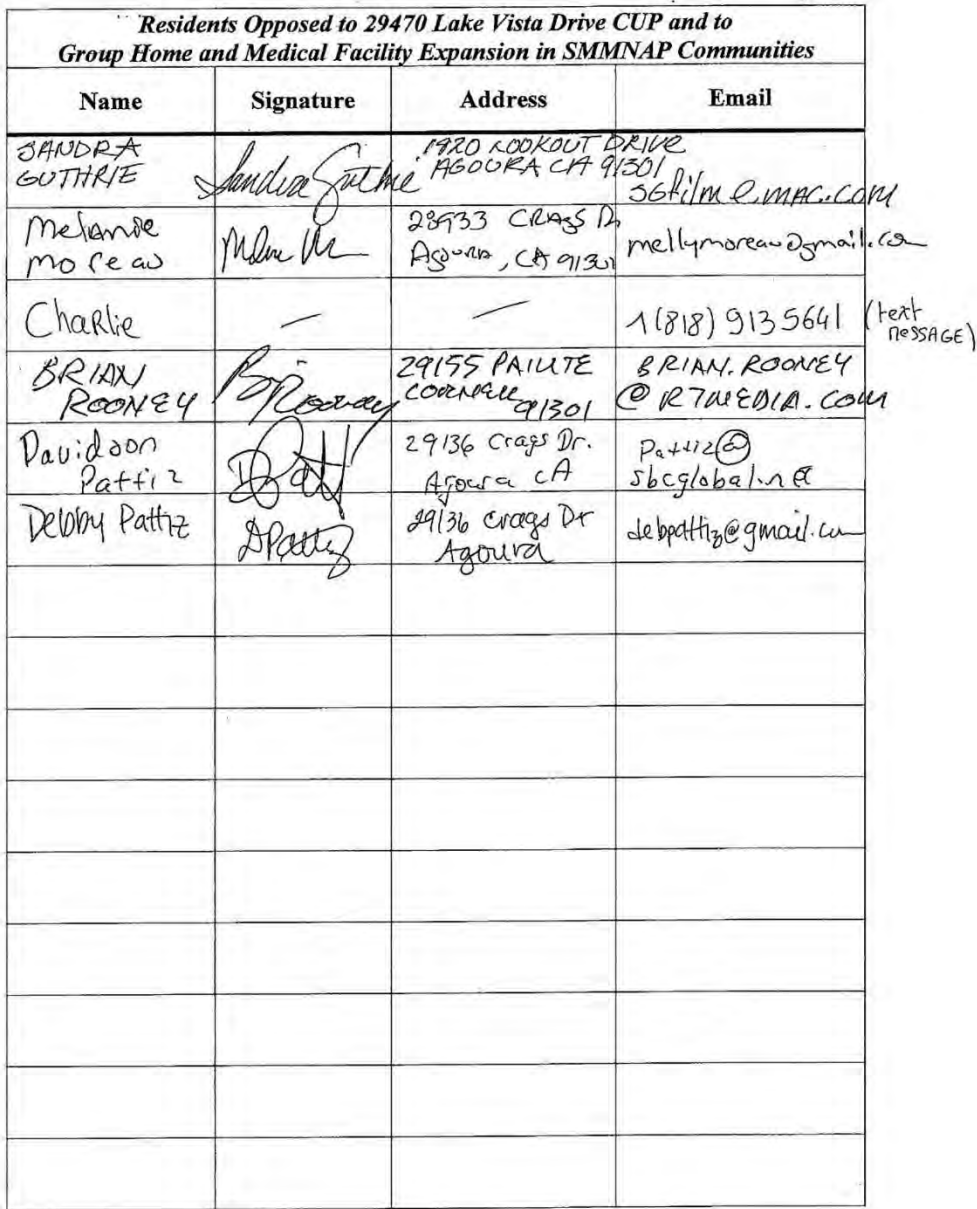 Residents Opposed to 29470 Lake Vista Drive CUP and to
Group Home and Medical Facility Expansion in SMMNAP Communities
Name Signature Address Email
SANDRA
GUTHRIE
Sandra Guthrie
1920 LOOKOUT DRIVE
AGOURA CA 91301
sgfilm@mac.com
Melanie
Moreau
28933 CRAGS Dr
Agoura, CA 91301
mellymoreau@gmail.com
Charlie
—
—
1(818) 913 5641 (text
MESSAGE)
BRIAN
ROONEY
B Rooney
29155 PAIUTE
CORNELL
91301
BRIAN.ROONEY
@R7MEDIA.COM
Davidson
Pattiz
29136 Crags Dr.
Agoura CA
Pattiz@
sbcglobal.net
Debby Pattiz
DPattiz
29136 Crags Dr
Agoura
debpattiz@gmail.com